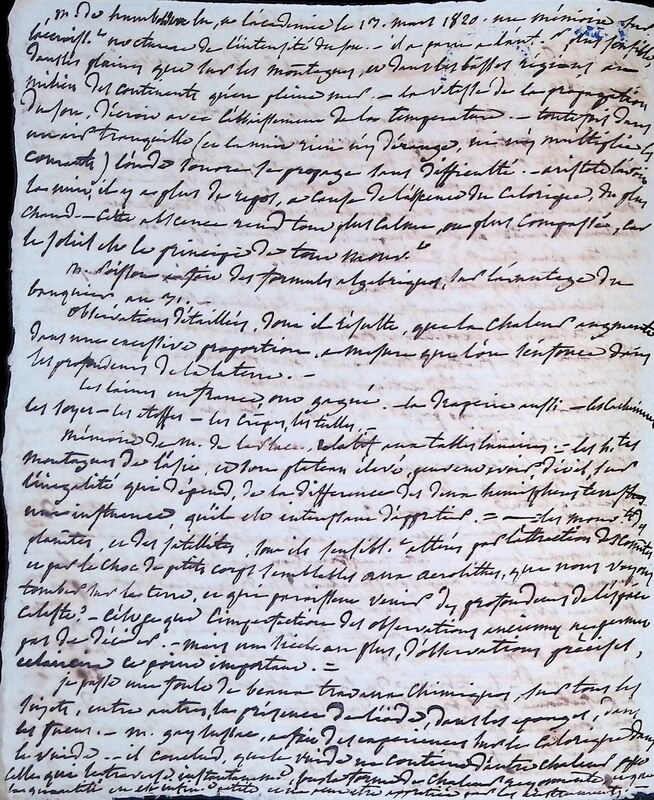 m. de humboldt lu, a l'académie le 13. mars 1820. une mémoire sur
l'accroiss.t nocturne de l'intensité du son. - il a paru a l'aut.r plus sensible
dans les plaines que sur les montagnes, et dans les basses regions au
milieu des continents qu'en pleine mer. - la vitesse de la propagation
du son, décroit avec l'abaissement de la temperature. - toutefois dans
un air tranquille (et la nuit rien n'y dérange, ni n'y multiplie les
courants) l'onde sonore se propage sans difficulté. - aristote
la nuit, il y a plus de repos, a cause de l'absence du calorique, du plus
chaud. - cette absence rend tout plus calme, car
le soleil est le principe de tout mouv.t
m. poisson des formules algebriques, sur l'avantage du
banquier, au 31. -
observations détaillées, dont il résulte, que la chaleur augmente
dans une excessive proportion, a mesure que l'on s'enfonce dans
les profondeurs de la terre. -
les laines en france ont gagné. - la draperie aussi - les cachemires
les soyes - les étoffes - les crêpes, les tulles. -
mémoire de m. de la place, relatif aux tables lunaires - les h.tes
montagnes de l'asie, et son plateau élevé, peuvent avoir sur
l'inégalité qui dépend, de la difference des deux hemispheres terrestres
une influence, qu'il est interessant d'apprécier. = - les mouv.ts des
planètes, et des satellites, sont ils sensibl.t altérés par l'attraction des comètes
et par le choc de petits corps semblables aux aerolithes, que nous voyons
tomber sur la terre, et que paraissent venir des profondeurs de l'espace
celeste? - C'est ce que l'imperfection des observations anciennes ne permet
pas de décider. - mais un siecle au plus, d'observations précises,
éclaircira ce point important. =
je passe une foule de beaux travaux chimiques, sur tous les
sujets, entre autres, la présence de l'iode, dans les eponges, dans
les fucus. - m. gay lussac, a fait des experiences sur le calorique dans
le vuide. - il conclud, que le vuide ne contient d'autre chaleur, que
celle qui le traverse instantaném.t sous la forme de chaleur rayonnante
la quantité en est